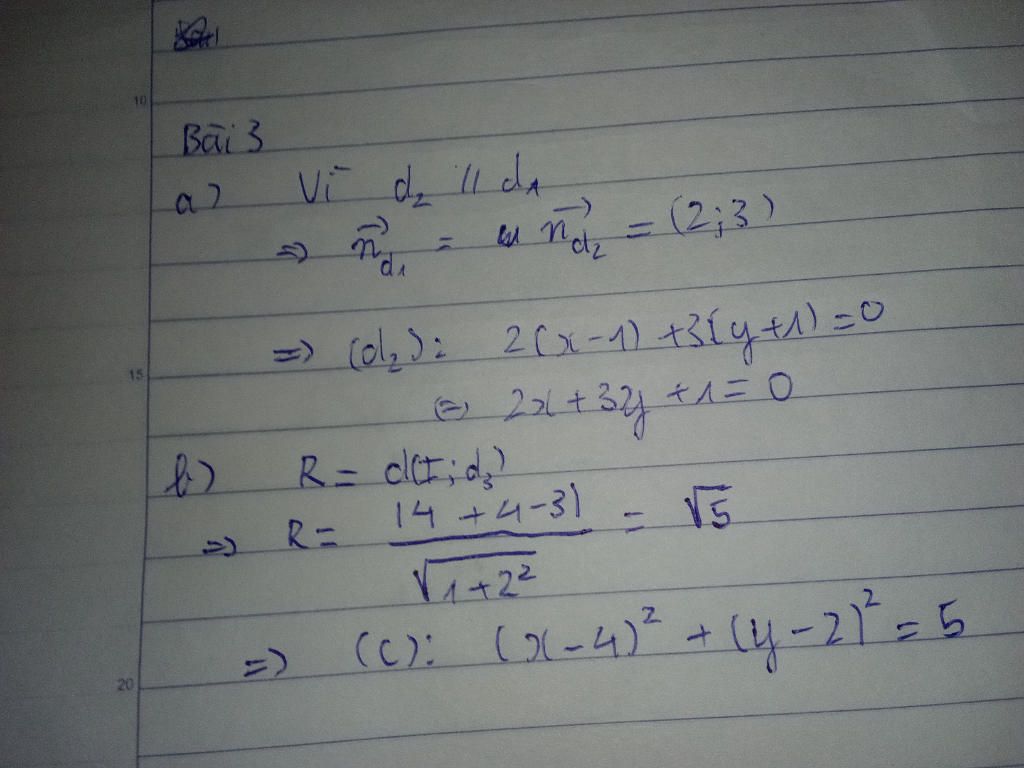 10
Bài 3
a) Vì d₂ // d₁
=> n⃗d₁ = n⃗d₂ = (2;3)
=> (d₂): 2(x-1) +3(y+1) =0
15
<=> 2x+3y +1= 0
b) R= d(I;d₃)
=> R= |4 +4-3| / √1+2² = √5
=> (C): (x-4)² + (y-2)² = 5
20